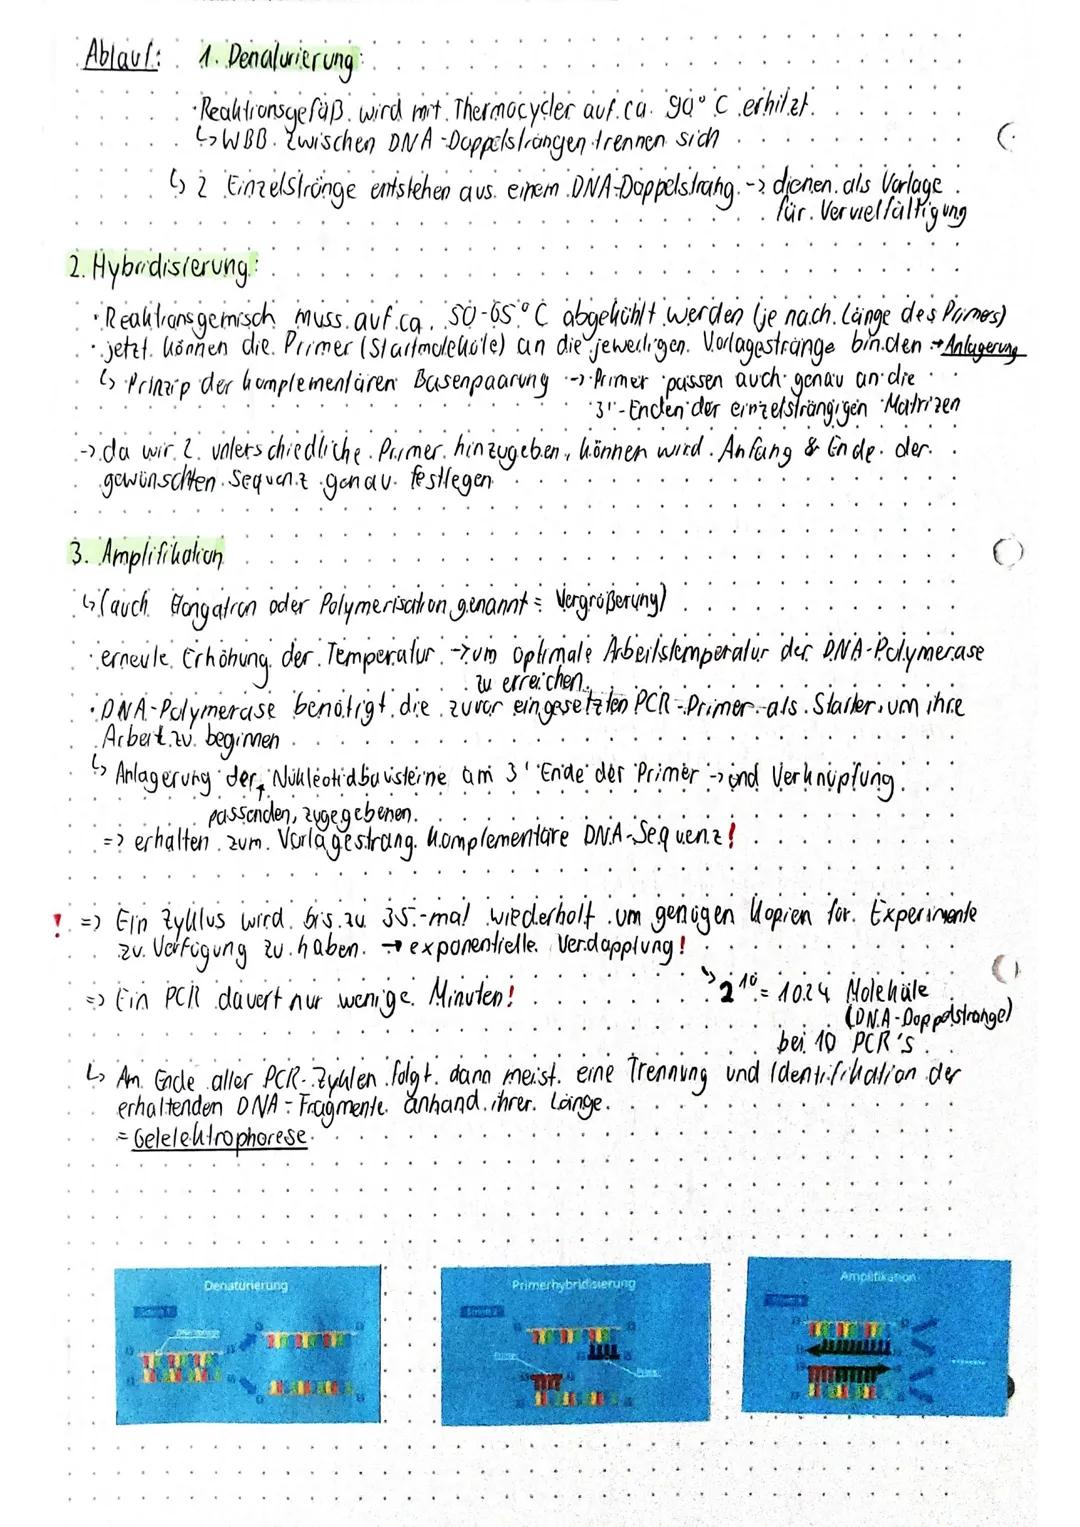 Ablauf: 1. Denaturierung:
·Reaktionsgefäß wird mit Thermocycler auf ca. 90° C erhitzt.
↳WBB zwischen DNA-Doppelsträngen trennen sich
↳ 2 Einzelstränge entstehen aus einem DNA-Doppelstrang -> dienen als Vorlage
für Vervielfältigung
2. Hybridisierung:
·Reaktionsgemisch muss auf ca. 50-65°C abgekühlt werden (je nach Länge des Primers)
· jetzt können die Primer (Startmoleküle) an die jeweiligen Vorlagestränge binden → Anlagerung
↳ Prinzip der komplementären Basenpaarung -> Primer passen auch genau an die
3'-Enden der einzelsträngigen Matrizen
-> da wir 2 unterschiedliche Primer hinzugeben, können wird Anfang & Ende der
gewünschten Sequenz genau festlegen
3. Amplifikation
↳ (auch Elongation oder Polymerisation genannt = Vergrößerung)
· erneute Erhöhung der Temperatur -> um optimale Arbeitstemperatur der DNA-Polymerase
zu erreichen
· DNA-Polymerase benötigt die zuvor eingesetzten PCR-Primer als Starter, um ihre
Arbeit zu beginnen
↳ Anlagerung der Nukleotidbausteine am 3' Ende der Primer -> und Verknüpfung
passenden, zugegebenen
=> erhalten zum Vorlagestrang komplementäre DNA-Sequenz!
! => Ein Zyklus wird bis zu 35-mal wiederholt um genügen Kopien für Experimente
zu Verfügung zu haben. → exponentielle Verdopplung!
=> Ein PCR dauert nur wenige Minuten! ↳ 2¹⁰ = 1024 Moleküle
(DNA-Doppelstränge)
bei 10 PCR's
↳ Am Ende aller PCR-Zyklen folgt dann meist eine Trennung und Identifikation der
erhaltenden DNA-Fragmente anhand ihrer Länge.
= Gelelektrophorese
Denaturierung
Schritt 1
Primerhybridisierung
Schritt 2
Primer
Primer
Amplifikation
Schritt 3